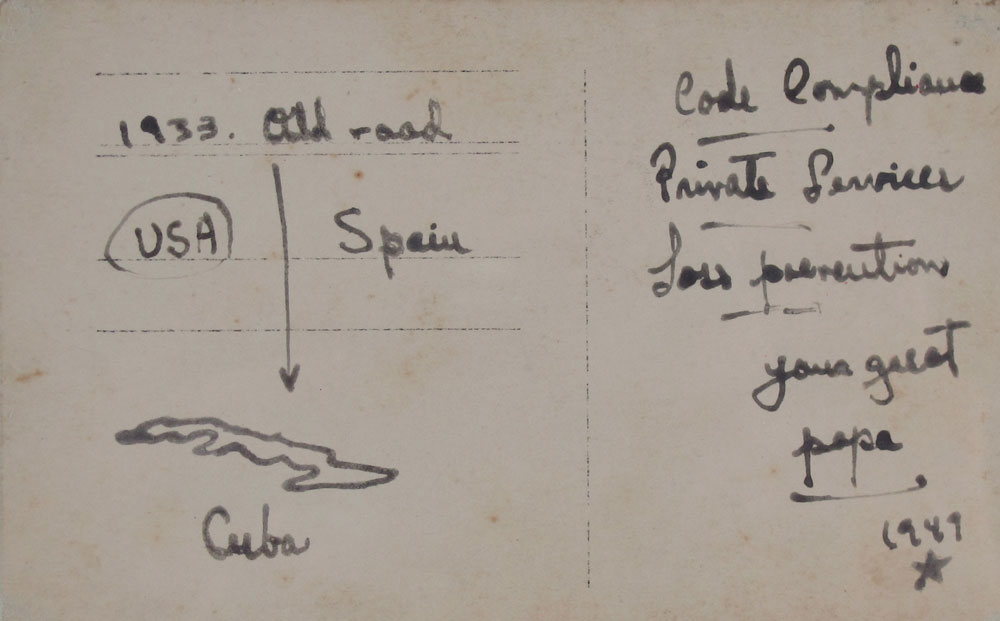 1933. Old road
USA
Spain
Cuba
Code Compliance
Private Services
Loss prevention
your great
papa
1949